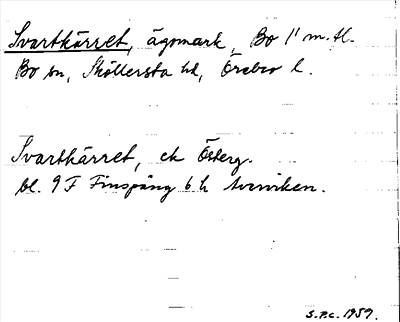 Svartkärret, ägomark, Bo 1¹ m.fl.
Bo sn, Sköllersta hd, Örebro l.
Svartkärret, ek Österg.
bl. 9 F Finspång 6 h Averviken.
S.P.C. 1959.